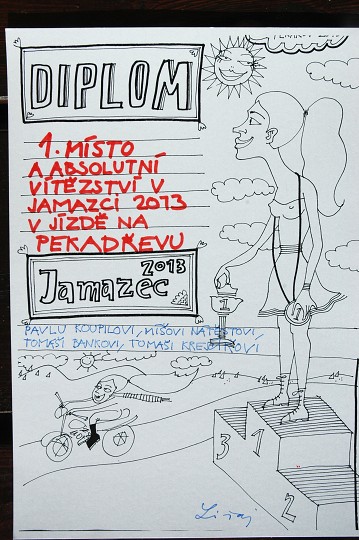 DIPLOM
1. MÍSTO
A ABSOLUTNÍ
VÍTĚZSTVÍ V
JAMAZCI 2013
V JÍZDĚ NA
PEKADŘEVU
2013
Jamazec
PAVLU KOUPILOVI, MÍŠOVI
TOMÁŠI BANKOVI, TOMÁŠI
1
1
3 1
2